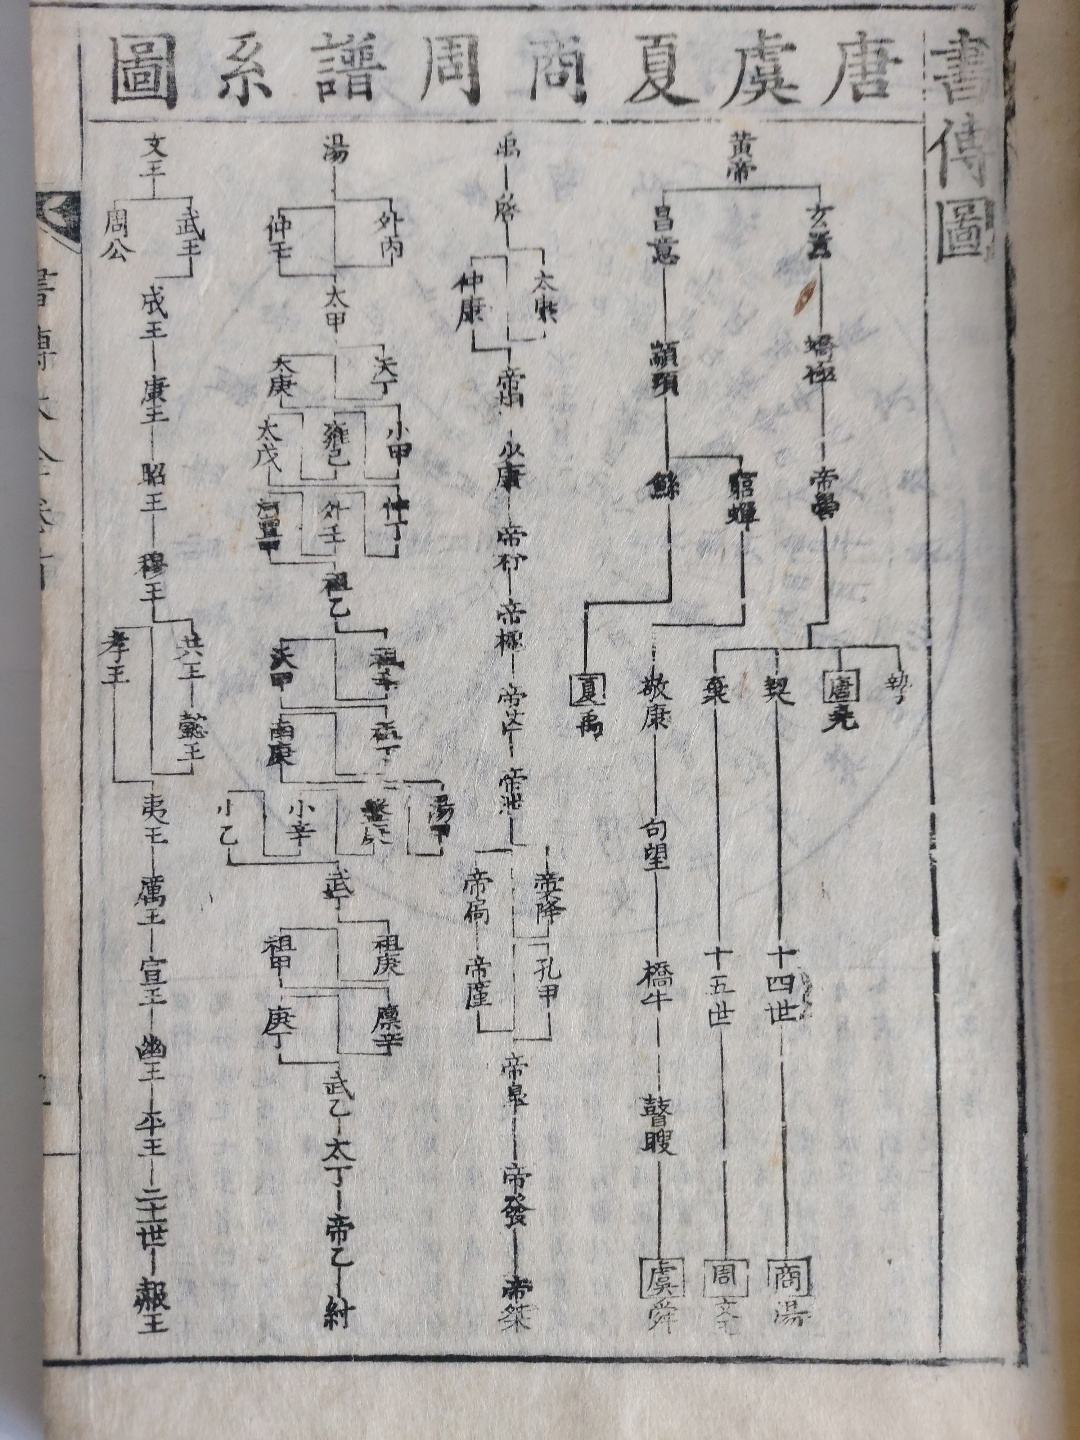 書傳圖
唐虞夏商周譜系圖
黃帝
玄囂
昌意
蟜極
顓頊
帝嚳
窮蟬
鯀
摯
唐堯
契
棄
敬康
夏禹
句望
十四世
十五世
橋牛
瞽瞍
商湯
周文王
虞舜
禹
啓
太康
仲康
帝相
少康
帝杼
帝槐
帝芒
帝泄
帝降
帝扃
孔甲
帝廑
帝皐
帝發
帝桀
湯
外丙
仲壬
太甲
沃丁
太庚
小甲
雍己
太戊
仲丁
外壬
河亶甲
祖乙
祖辛
沃甲
祖丁
南庚
陽甲
盤庚
小辛
小乙
武丁
祖庚
祖甲
廩辛
庚丁
武乙
太丁
帝乙
紂
文王
武王
周公
成王
康王
昭王
穆王
共王
懿王
孝王
夷王
厲王
宣王
幽王
平王
二十世
赧王
書傳大全